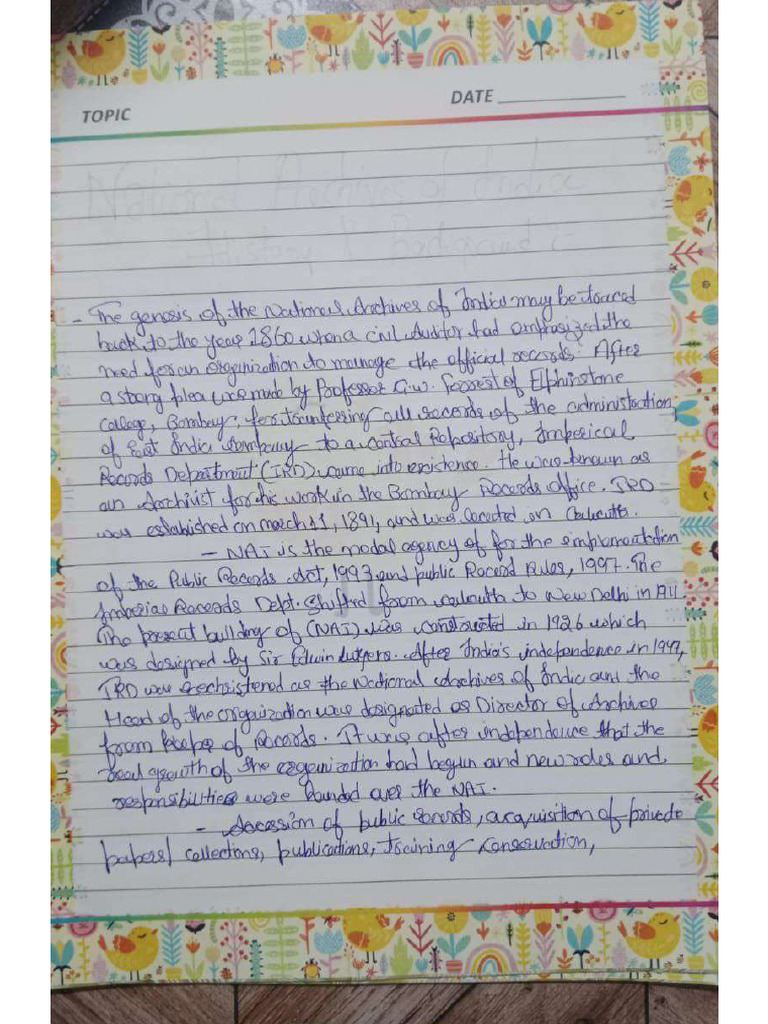 TOPIC
DATE
National Archives of India
History & Background :-
- The genesis of the National Archives of India may be traced
back to the year 1860 when a civil Auditor had emphasized the
need for an organization to manage the official records. After
a strong plea was made by Professor G.W. Forrest of Elphinstone
College, Bombay, for transferring all records of the administration
of East India Company to a Central Repository, Imperical
Records Department (IRD) came into existence. He was known as
an Archivist for his work in the Bombay Records office. IRD
was established on march 11, 1891, and was located in Calcutta.
- NAI is the modal agency of for the implementation
of the Public Records Act, 1993 and public Record Rules, 1997. The
Imperial Records Dept. Shifted from calcutta to New Delhi in
The present building of (NAI) was constructed in 1926 which
was designed by Sir Edwin Lutyens. After India's independence in 1947,
IRD was rechristened as the National Archives of India and the
Head of the organization was designated as Director of Archives
from Keeper of Records. It was after independence that the
real growth of the organization had begun and new roles and
responsibilities were handed over the NAI.
- Accession of public records, acquisition of private
papers/ collections, publications, training conservation,